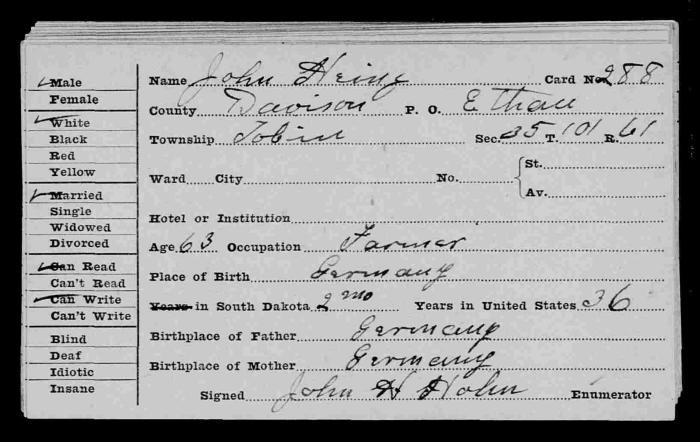 Male
Female
White
Black
Red
Yellow
Married
Single
Widowed
Divorced
Can Read
Can't Read
Can Write
Can't Write
Blind
Deaf
Idiotic
Insane
Name John Heinz Card No. 288
County Davison P. O. Ethan
Township Tobin Sec. 35 T. 101 R. 61
Ward City No. St.
Av.
Hotel or Institution
Age 63 Occupation Farmer
Place of Birth Germany
Years in South Dakota 2 mo Years in United States 36
Birthplace of Father Germany
Birthplace of Mother Germany
Signed John H Hohn Enumerator